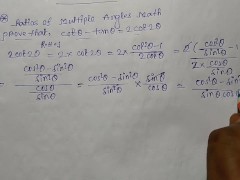 Ratios of Multiple Angles Math
Prove that, cotθ - tanθ = 2cot2θ
R.H.S
2cot2θ = 2 × cot2θ = 2 × cot²θ-1 / 2cotθ = 2(cos²θ/sin²θ - 1) / 2 × cosθ/sinθ
= cos²θ-sin²θ/sin²θ / cosθ/sinθ = cos²θ-sin²θ/sin²θ × sinθ/cosθ = cos²θ-sin²θ / sinθ cosθ